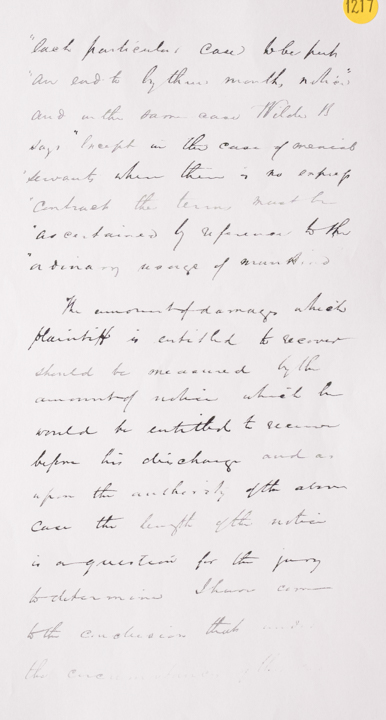 1217
"each particular case to be put
"an end to by three months notice"
and in the same case Wilde B
says "Except in the case of menial
"servants when there is no express
"contract the terms must be
"ascertained by reference to the
"ordinary usage of mankind
The amount of damages which
plaintiff is entitled to recover
should be measured by the
amount of notice which he
would be entitled to receive
before his discharge and as
upon the authority of the above
case the length of the notice
is a question for the jury
to determine I have come
to the conclusion that under
the circumstances of the